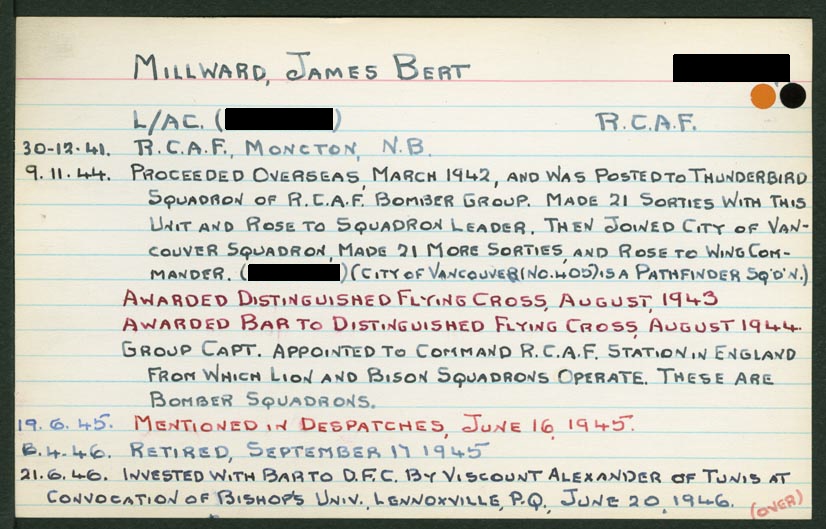 MILLWARD, JAMES BERT
L/AC. ( ) R.C.A.F.
30-12-41. R.C.A.F., MONCTON, N.B.
9.11.44. PROCEEDED OVERSEAS, MARCH 1942, AND WAS POSTED TO THUNDERBIRD
SQUADRON OF R.C.A.F. BOMBER GROUP. MADE 21 SORTIES WITH THIS
UNIT AND ROSE TO SQUADRON LEADER. THEN JOINED CITY OF VAN-
COUVER SQUADRON, MADE 21 MORE SORTIES, AND ROSE TO WING COM-
MANDER. ( ) (CITY OF VANCOUVER (NO. 405) IS A PATHFINDER SQ'D'N.)
AWARDED DISTINGUISHED FLYING CROSS, AUGUST, 1943
AWARDED BAR TO DISTINGUISHED FLYING CROSS, AUGUST 1944.
GROUP CAPT. APPOINTED TO COMMAND R.C.A.F. STATION IN ENGLAND
FROM WHICH LION AND BISON SQUADRONS OPERATE. THESE ARE
BOMBER SQUADRONS.
19.6.45. MENTIONED IN DESPATCHES, JUNE 16, 1945.
8.4.46. RETIRED, SEPTEMBER 17 1945
21.6.46. INVESTED WITH BAR TO D.F.C. BY VISCOUNT ALEXANDER OF TUNIS AT
CONVOCATION OF BISHOP'S UNIV., LENNOXVILLE, P.Q., JUNE 20, 1946.
(OVER)